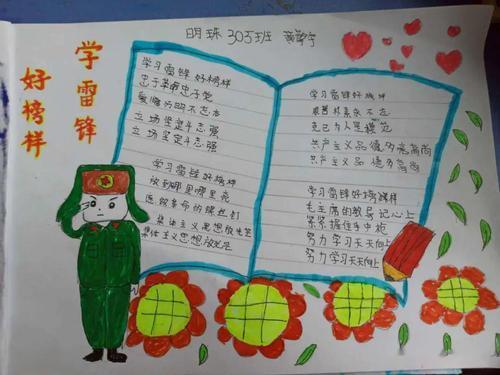 明珠 305班
学雷锋
好榜样
学习雷锋好榜样
忠于革命忠于党
爱憎分明不忘本
立场坚定斗志强
立场坚定斗志强
学习雷锋好榜样
放到哪里哪里亮
愿做革命的螺丝钉
集体主义思想放光芒
集体主义思想放光芒
学习雷锋好榜样
艰苦朴素永不忘
克己为人是模范
共产主义品德多高尚
共产主义品德多高尚
学习雷锋好榜样
毛主席的教导记心上
紧紧握住手中枪
努力学习天天向上
努力学习天天向上